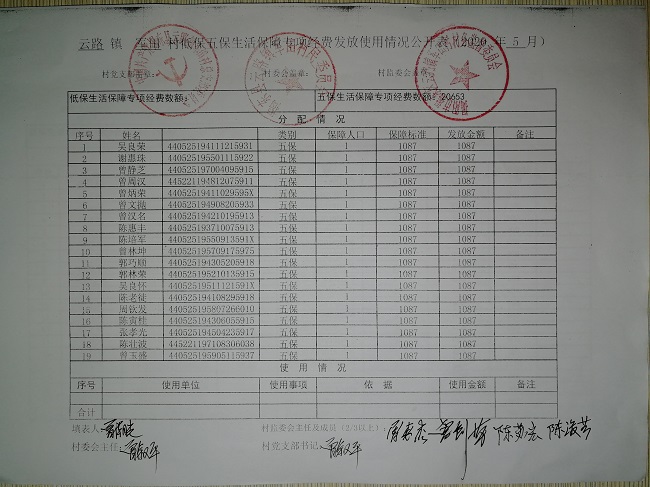 云路 镇 军田 村低保五保生活保障专项经费发放使用情况公开表(2020 年 5 月)
村党支部盖章: 村委会盖章: 村监委会盖章:
低保生活保障专项经费数额: 五保生活保障专项经费数额: 20653
分 配 情 况
序号 姓名 类别 保障人口 保障标准 发放金额 备注
1 吴良荣 440525194111215931 五保 1 1087 1087
2 谢惠珠 440525195501115922 五保 1 1087 1087
3 曾静芝 440525197004095915 五保 1 1087 1087
4 曾周汉 445221194812075911 五保 1 1087 1087
5 曾炳荣 44052519411029595X 五保 1 1087 1087
6 曾文 440525194908205933 五保 1 1087 1087
7 曾汉名 440525194210195913 五保 1 1087 1087
8 陈惠丰 440525193710075913 五保 1 1087 1087
9 陈培军 44052519550913591X 五保 1 1087 1087
10 曾林坤 440525195709175975 五保 1 1087 1087
11 郭巧顺 440525194305205918 五保 1 1087 1087
12 郭林荣 440525195210135915 五保 1 1087 1087
13 吴良怀 44052519511121591X 五保 1 1087 1087
14 陈老徒 440525194108295918 五保 1 1087 1087
15 周钦发 440525195807266010 五保 1 1087 1087
16 陈南桂 440525194306055915 五保 1 1087 1087
17 张孝光 440525194504235917 五保 1 1087 1087
18 陈壮波 445221197108306038 五保 1 1087 1087
19 曾玉盛 440525195905115937 五保 1 1087 1087
使 用 情 况
序号 使用单位 使用事项 依 据 使用金额 备注
合计
填表人: 村监委会主任及成员(2/3以上):
村委会主任: 村党支部书记: